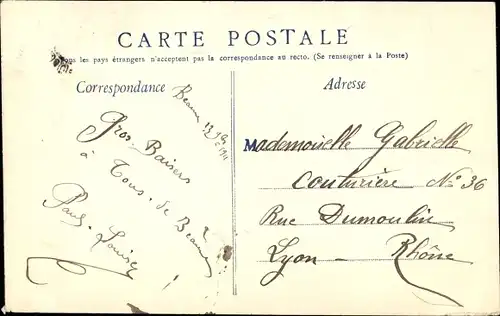 CARTE POSTALE
Tous les pays étrangers n'acceptent pas la correspondance au recto. (Se renseigner à la Poste)
Correspondance
Adresse
Beaune
Gros Baisers
à Tous. de Beaune
Paul. Louise
Mademoiselle Gabrielle
Couturière No 36
Rue Dumoulin
Lyon - Rhône